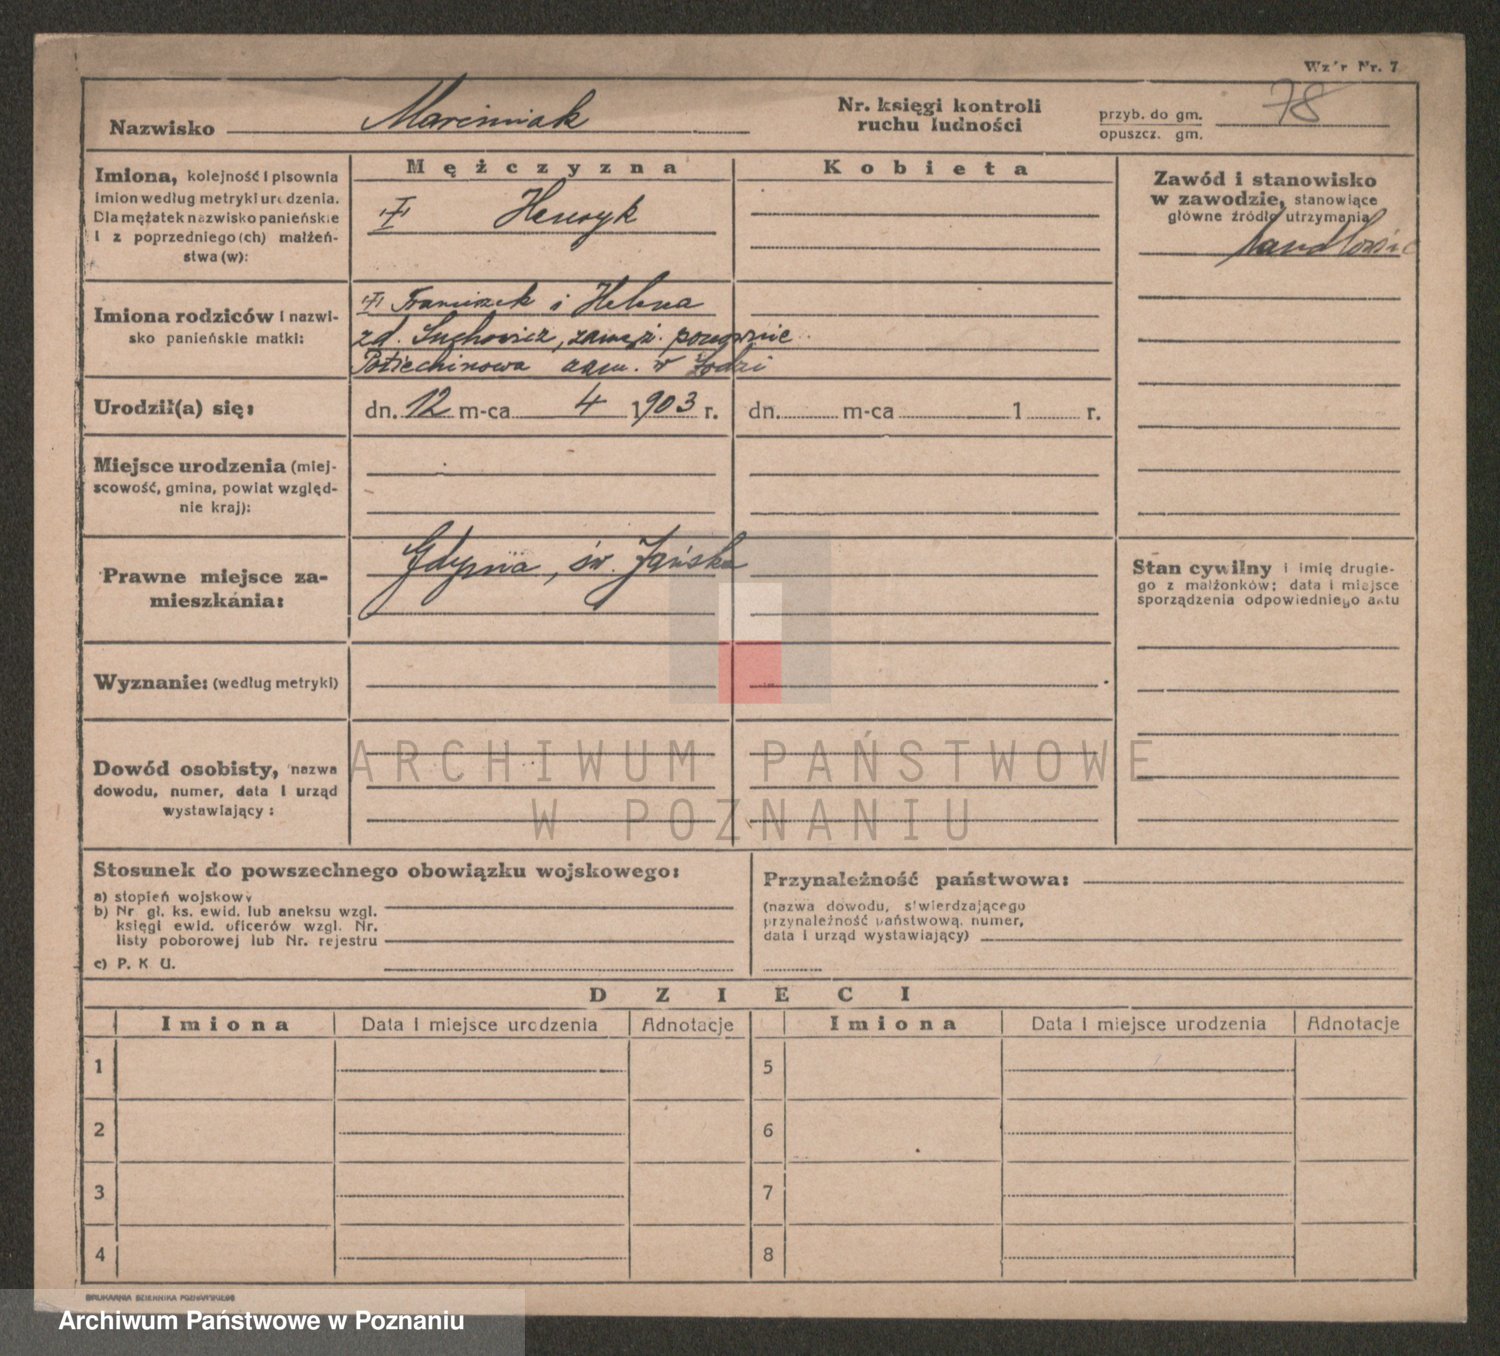 Wzór Nr. 7
Nazwisko Marciniak
Nr. księgi kontroli
ruchu ludności
przyb. do gm.
opuszcz. gm.
78
Imiona, kolejność i pisownia
imion według metryki urodzenia.
Dla mężatek nazwisko panieńskie
i z poprzedniego(ch) małżeń-
stwa(w):
Mężczyzna
I Henryk
Kobieta
Zawód i stanowisko
w zawodzie, stanowiące
główne źródło utrzymania
handlowiec
Imiona rodziców i nazwi-
sko panieńskie matki:
I Franciszek i Helena
zd. Suchowicz, zamęż. ponownie
zam. w Łodzi
Urodził(a) się:
dn. 12 m-ca 4 1903 r.
dn. m-ca 1 r.
Miejsce urodzenia (miej-
scowość, gmina, powiat względ-
nie kraj):
Prawne miejsce za-
mieszkania:
Gdynia, św. Jańska
Stan cywilny i imię drugie-
go z małżonków; data i miejsce
sporządzenia odpowiedniego aktu
Wyznanie: (według metryki)
Dowód osobisty, nazwa
dowodu, numer, data i urząd
wystawiający:
ARCHIWUM PAŃSTWOWE
W POZNANIU
Stosunek do powszechnego obowiązku wojskowego:
a) stopień wojskowy
b) Nr gł. ks. ewid. lub aneksu wzgl.
księgi ewid. oficerów wzgl. Nr.
listy poborowej lub Nr. rejestru
c) P. K U.
Przynależność państwowa:
(nazwa dowodu, stwierdzającego
przynależność państwową, numer,
data i urząd wystawiający)
DZIECI
Imiona Data i miejsce urodzenia Adnotacje Imiona Data i miejsce urodzenia Adnotacje
1 5
2 6
3 7
4 8
DRUKARNIA DZIENNIKA POZNAŃSKIEGO
Archiwum Państwowe w Poznaniu